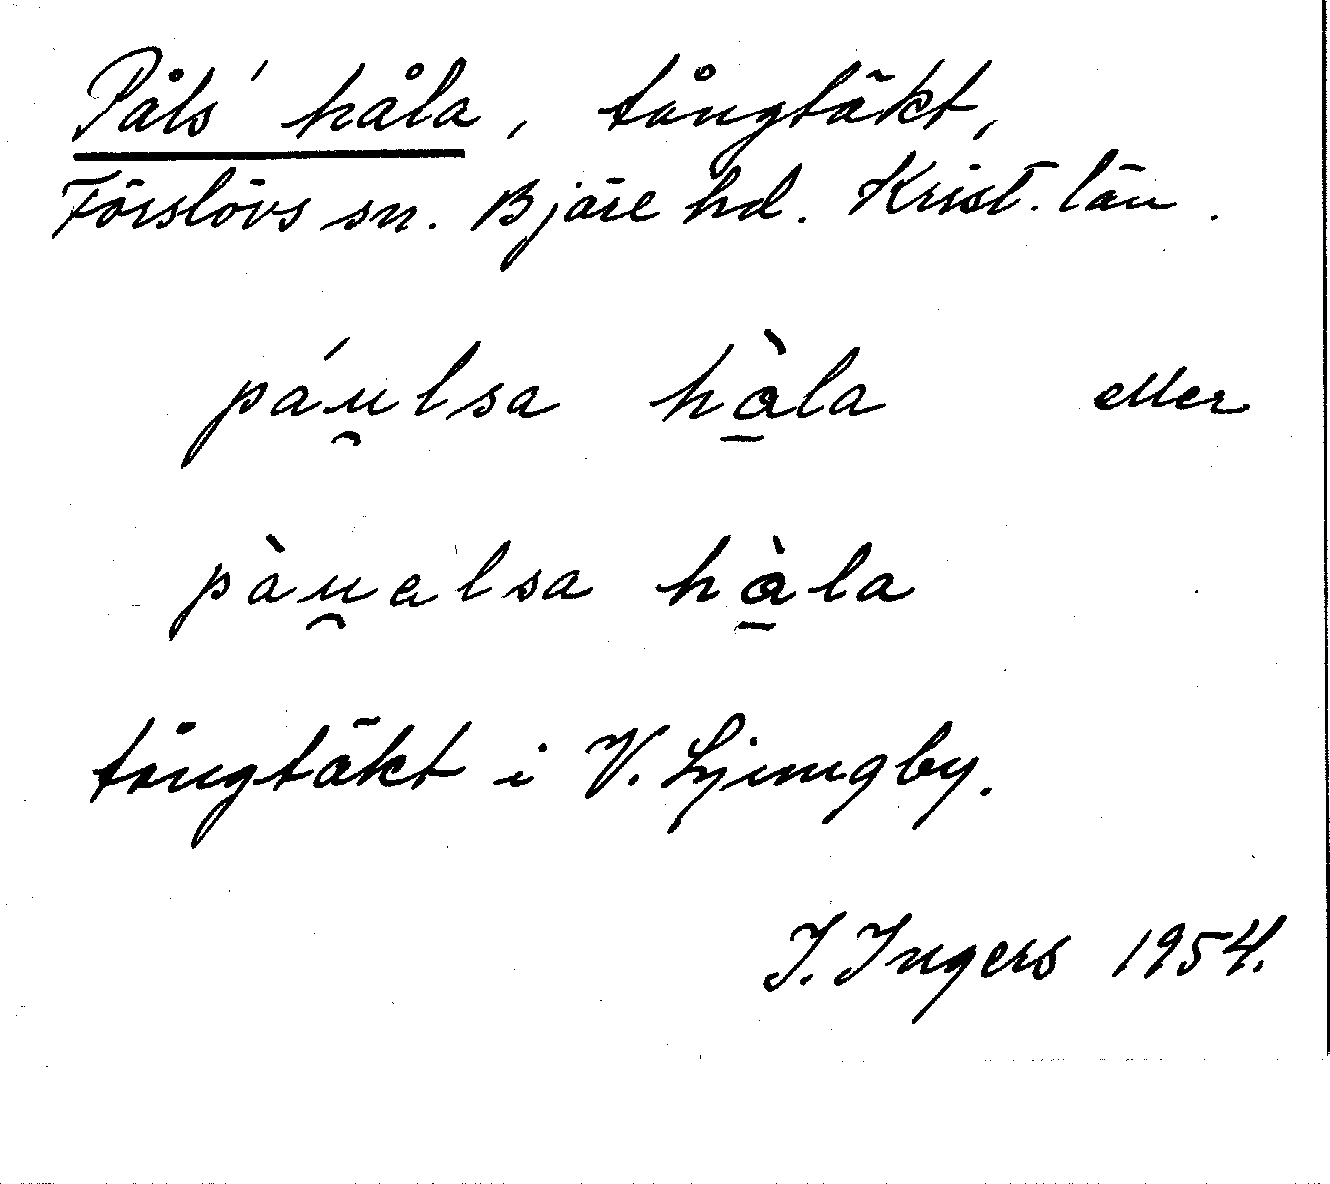 Påls' håla, tångtäkt,
Förslövs sn. Bjäre hd. Krist. län.
páu̯lsa hà̱la eller
pàu̯əlsa hà̱la
tångtäkt i V. Ljungby.
I. Ingers 1954.